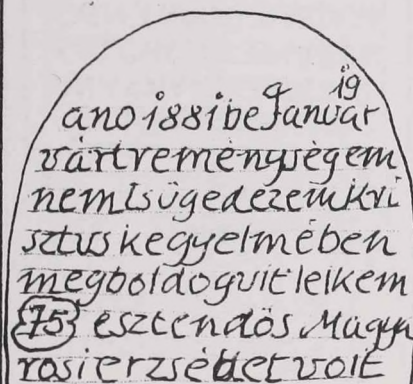 19
ano 1881 be Januar
várt reménységem
nem tsügedezem kri
sztus kegyelmében
megboldogult lelkem
75 esztendös Magya
rosi erzsébet volt